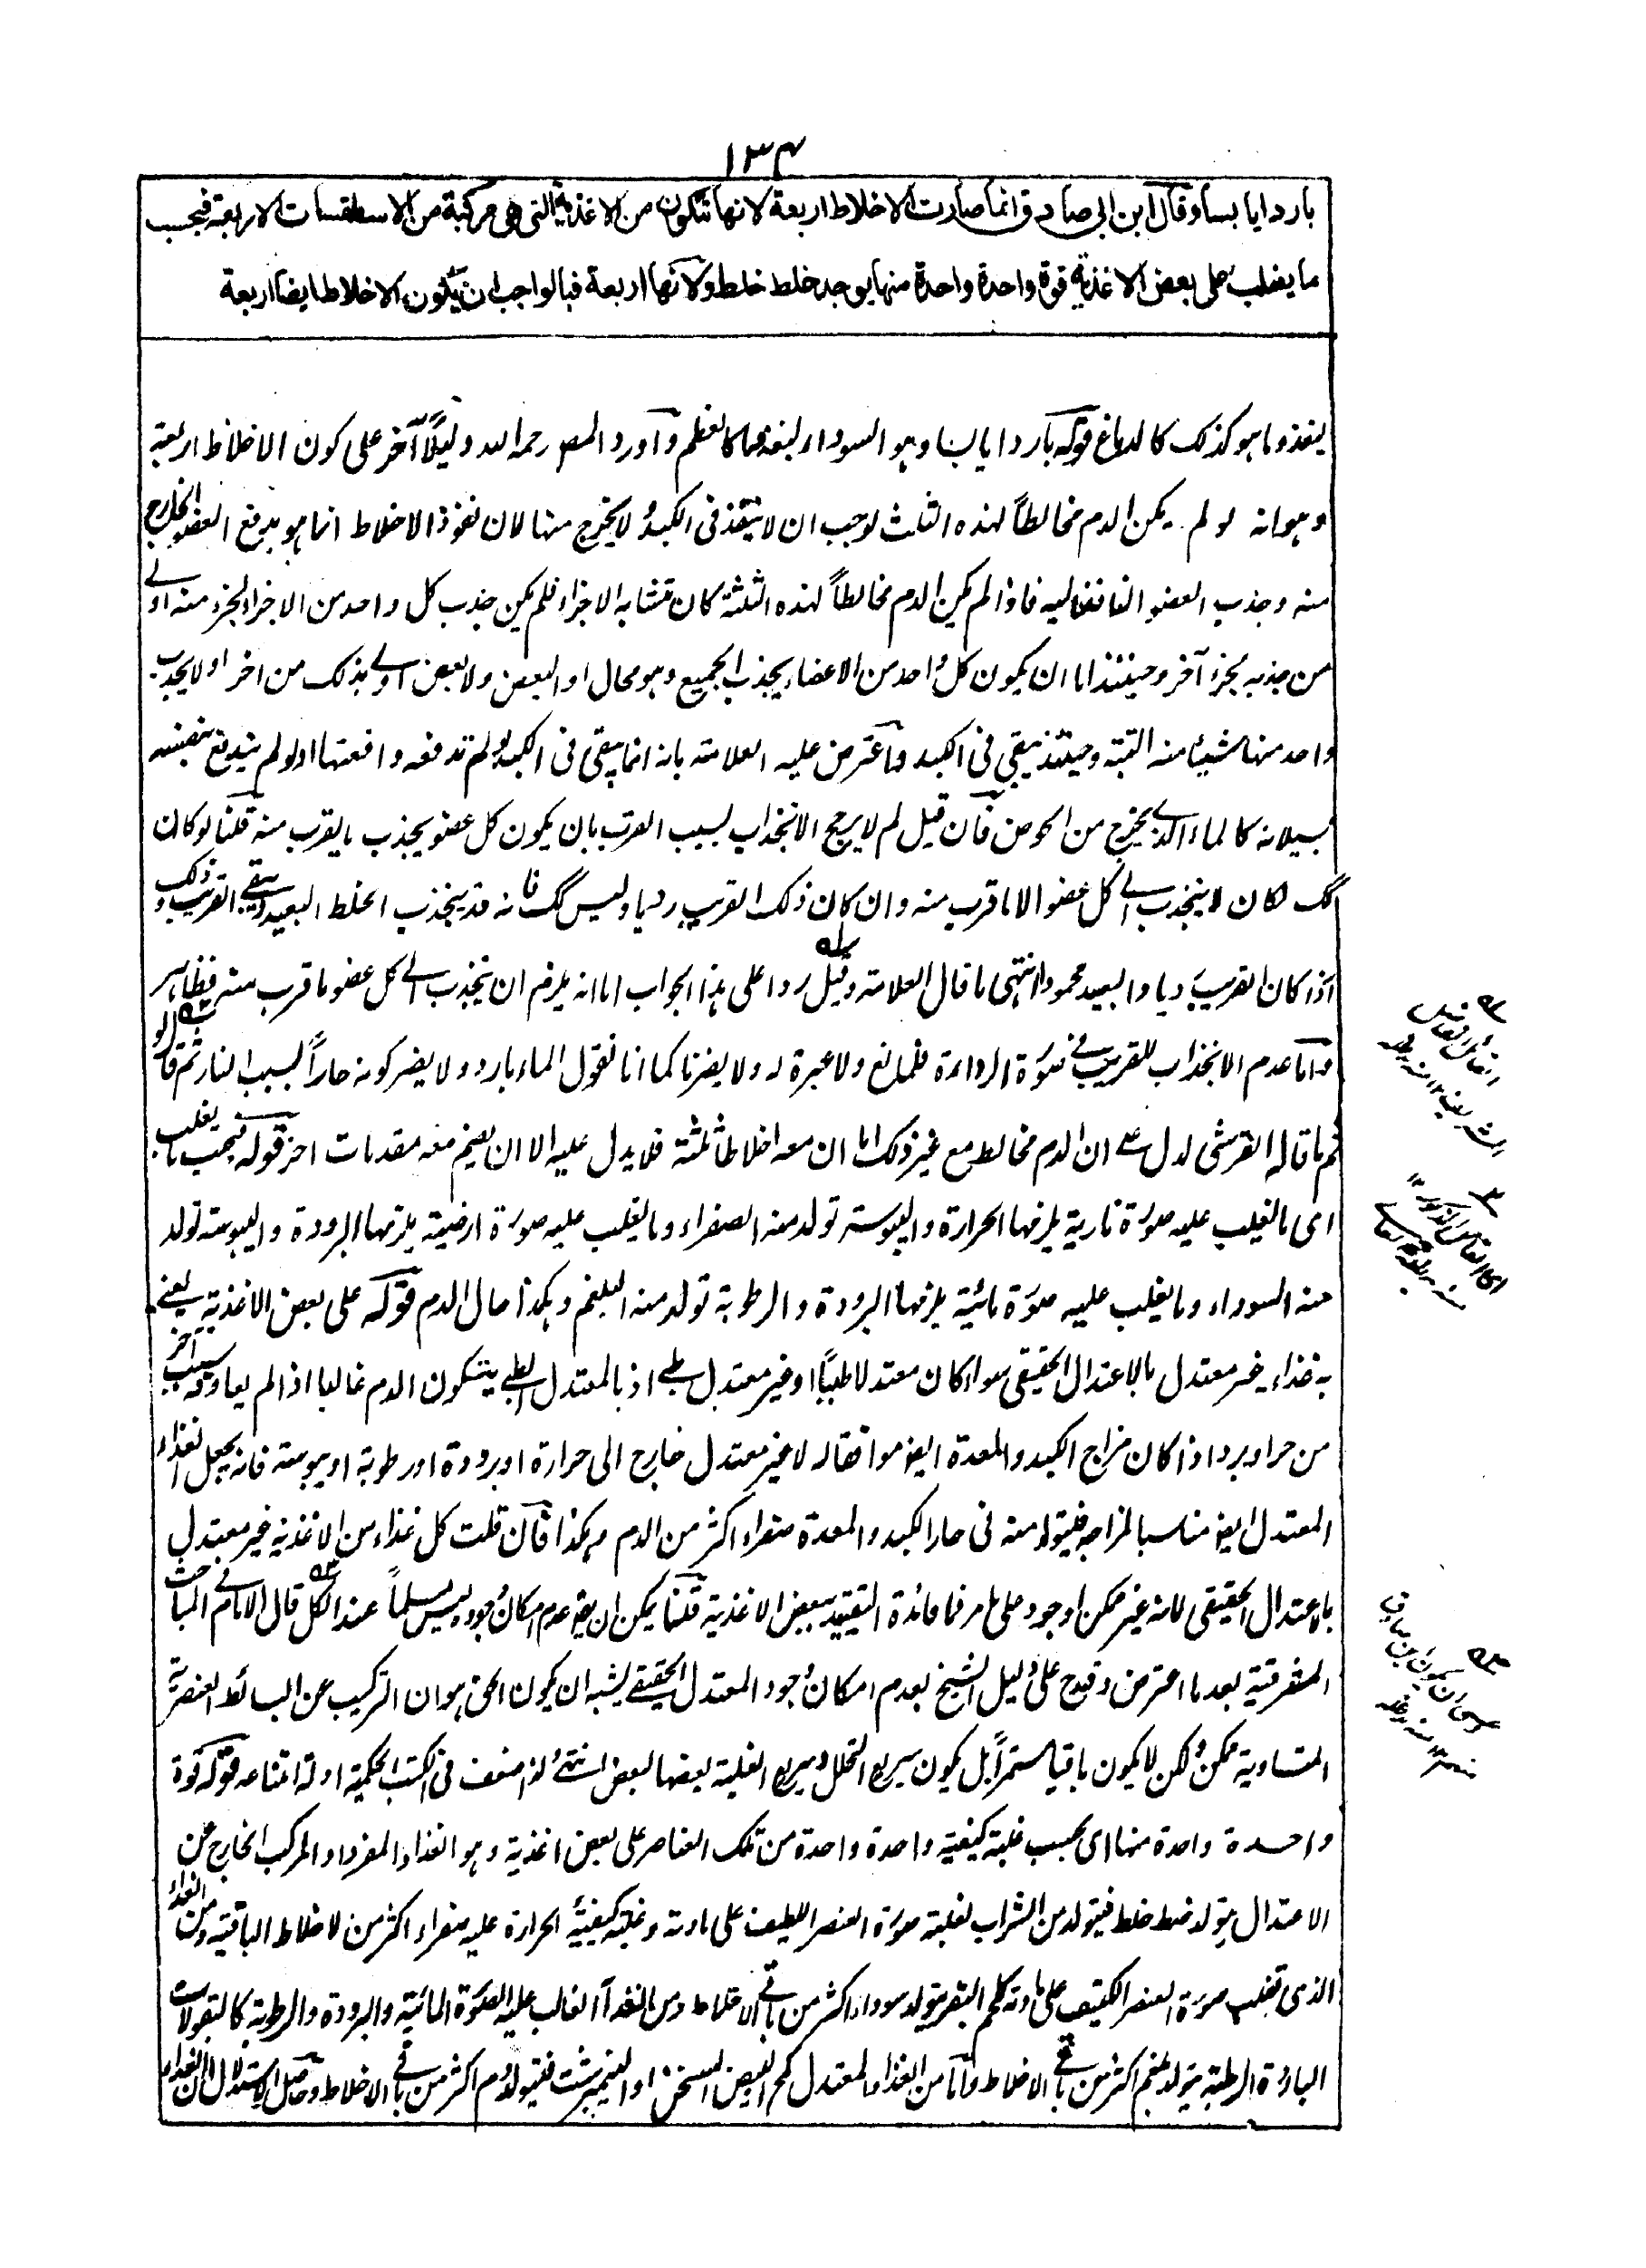 ١٣٤
باردا يابسا وقال ابن ابى صادق انما صارت الاخلاط اربعة لانها تتكون من الاغذية التى هى مركبة من الاسطقسات الاربعة فبحسب
ما يغلب على بعض الاغذية قوة واحدة واحدة منها يوجد خلط خلط ولانها اربعة فبالواجب ان يكون الاخلاط ايضا اربعة
ليغذو ما هو كذلك كالدماغ قوله باردا يابسا وهو السوداء ليغذو ما كالعظم وأورد المصـ رحمه الله دليلاً آخر على كون الاخلاط اربعة
وهو انه لو لم يكن الدم مخالطاً لهذه الثلث لوجب ان لا ينفذ فى الكبد ولا يخرج منها لان نفوذ الاخلاط انما هو بدفع العضو الخارج
منه وجذب العضو النافذ اليه فاذا لم يكن الدم مخالطاً لهذه الثلثة كان متشابه الاجزاء فلم يكن جذب كل واحد من الاجزاء لجزء منه اولى
من جذبه لجزء آخر وحينئذ اما ان يكون كل واحد من الاعضاء يجذب الجميع وهو محال او البعض ولا بعض اولى بذلك من اخر او لا يجذب
واحد منها شيئا منه البتة وحينئذ يبقى فى الكبد واعترض عليه العلامة بانه انما يبقى فى الكبد لو لم تدفعه دافعتها او لو لم يندفع بنفسه
لسيلانه كالماء الذى يخرج من الحوض فان قيل لم لا يرجح الانجذاب بسبب القرب بان يكون كل عضو يجذب ما يقرب منه قلنا لو كان
كك لكان لا ينجذب الى كل عضو الا ما قرب منه وان كان ذلك القريب رديا وليس كك فانه قد ينجذب الخلط البعيد ويبقى القريب وذلك
اذا كان القريب رديا والبعيد محمودا انتهى ما قال العلامة وقيل ردا على هذا الجواب اما انه يلزم ان ينجذب الى كل عضو ما قرب منه فظاهر
واما عدم الانجذاب للقريب فى صورة الرداءة فلمانع ولا عبرة له ولا يضرنا كما انا نقول الماء بارد ولا يضر كونه حاراً بسبب النار ثم قالوا
ثم ما قاله القرشى لدل على ان الدم مخالط مع غير ذلك اما ان معه اخلاطا ثلثة فلا يدل عليه الا ان يضم معه مقدمات اخر قوله فبحسب ما يغلب
اى ما يغلب عليه صورة نارية يلزمها الحرارة واليبوسة تولد منه الصفراء وما يغلب عليه صورة ارضية يلزمها البرودة واليبوسة تولد
منه السوداء وما يغلب عليه صورة مائية يلزمها البرودة والرطوبة تولد منه البلغم وهكذا حال الدم قوله على بعض الاغذية يعنى
به غذاء غير معتدل بالاعتدال الحقيقى سواء كان معتدلا طبيًا او غير معتدل طبى اذ بالمعتدل الطبى يتكون الدم غالبا اذا لم يعاوقه سبب آخر
من حر او برد اذا كان مزاج الكبد والمعدة ايضـ موافقا له لا غير معتدل خارج الى حرارة او برودة او رطوبة او يبوسة فانه يجعل الغذاء
المعتدل ايضـ مناسبا لمزاجه فيتولد منه فى حار الكبد والمعدة صفراء اكثر من الدم وهكذا فان قلت كل غذاء من الاغذية غير معتدل
بالاعتدال الحقيقى لانه غير ممكن الوجود على ما مر فما فائدة التقييد ببعض الاغذية قلنا يمكن ان يقـ عدم امكان وجوده ليس مسلماً عند الكل قال الامام فى المباحث
المشرقية بعد ما اعترض وقدح على دليل الشيخ بعدم امكان وجود المعتدل الحقيقى يشبه ان يكون الحق هو ان التركيب عن البسائط العنصرية
المتساوية ممكن ولكن لا يكون باقيا مستمراً بل يكون سريع التحلل وسريع الغلبة بعضها لبعض انتهى لذا ضعف فى الكتب الحكمية ادلة امتناعه قوله قوة
واحدة واحدة منها اى بحسب غلبة كيفية واحدة واحدة من تلك العناصر على بعض اغذية وهو الغذاء المفرد او المركب الخارج عن
الاعتدال يتولد خلط خلط فيتولد من الشراب لغلبة صورة العنصر اللطيف على مادته وغلبة كيفية الحرارة عليه صفراء اكثر من الاخلاط الباقية ومن الغذاء
الذى تغلب صورة العنصر الكثيف على مادته كلحم البقر يتولد سوداء اكثر من باقى الاخلاط ومن الغذاء الغالب عليه الصورة المائية والبرودة والرطوبة كالبقولات
الباردة الرطبة يتولد بلغم اكثر من باقى الاخلاط واما من الغذاء المعتدل كمح البيض المسخن او النيمبرشت فيتولد دم اكثر من باقى الاخلاط وحاصل الاستدلال ان الغذاء